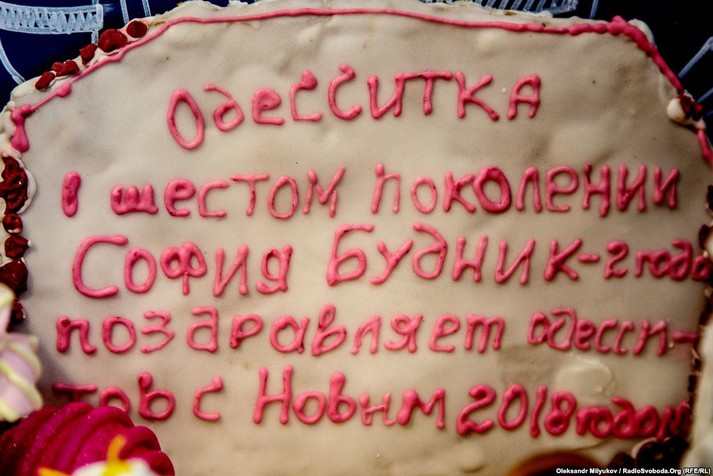 Одесситка
в шестом поколении
София Будник-2 года
поздравляет одесси-
тов с Новым 2018 годом
Oleksandr Milyukov / RadioSvoboda.Org (RFE/RL)